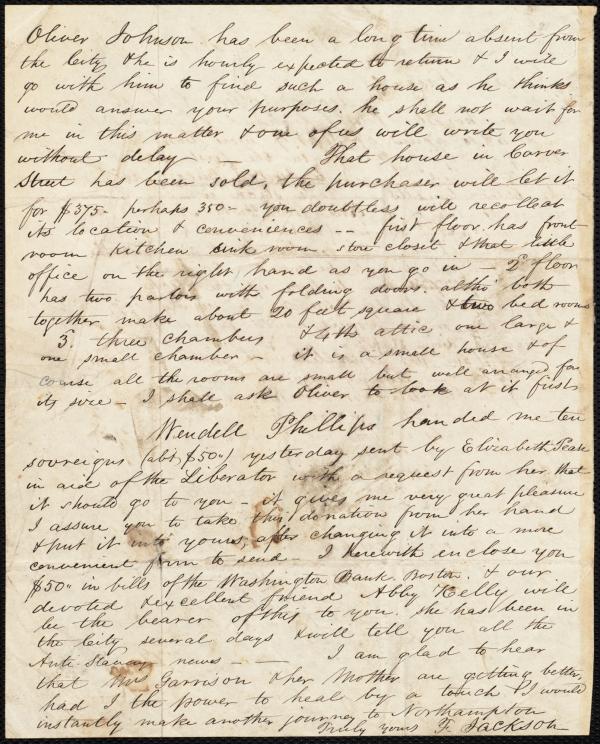 Oliver Johnson has been a long time absent from
the City & he is hourly expected to return & I will
go with him to find such a house as he thinks
would answer your purposes. he shall not wait for
me in this matter & one of us will write you
without delay — That house in Carver
Street has been sold, the purchaser will let it
for $375- perhaps 350- you doubtless will recollect
its location & conveniences -- first floor has front
room kitchen sink room store closet & that little
office on the right hand as you go in — 2d floor
has two parlors with folding doors. altho' both
together make about 20 feet square & two bed rooms
3. three chambers & 4th attic one large &
one small chamber — it is a small house & of
course all the rooms are small but well arranged for
its size — I shall ask Oliver to look at it first
Wendell Phillips handed me ten
sovereigns (abt $50") yesterday sent by Elizabeth Pease
in aid of the Liberator with a request from her that
it should go to you — it gives me very great pleasure
I assure you to take this donation from her hand
& put it into yours, after changing it into a more
convenient form to send — I herewith enclose you
$50" in bills of the Washington Bank Boston. & our
devoted & excellent friend Abby Kelly will
be the bearer of this to you. she has been in
the City several days & will tell you all the
Anti-Slavery news — — I am glad to hear
that Mrs Garrison & her Mother are getting better,
had I the power to heal by a touch I would
instantly make another journey to Northampton
Truly yours F. Jackson